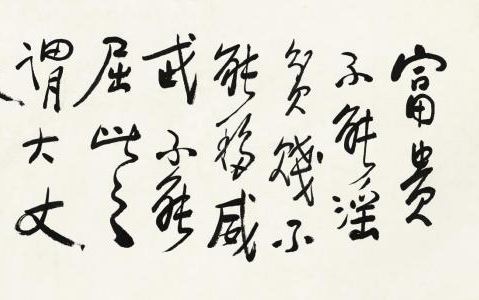 富貴
不能淫
貧賤不
能移威
武不能
屈此之
謂大丈